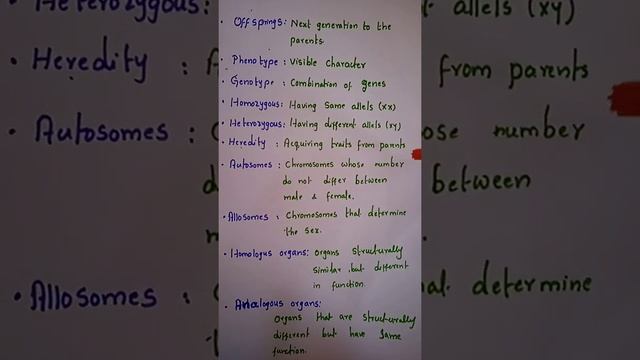 Offsprings: Next generation to the
parents
Phenotype: Visible character
Genotype: Combination of genes
Homozygous: Having Same allels (xx)
Heterozygous: Having different allels (xy)
Heredity: Acquiring traits from parents
Autosomes: Chromosomes whose number
do not differ between
male & female.
Allosomes: Chromosomes that determine
the sex.
Homologus organs: organs structurally
similar but different
in function.
Analogous organs:
Organs that are structurally
different but have Same
function.
Heterozygous:
allels (xy)
Heredity:
from parents
Autosomes:
number
between
Allosomes:
determine